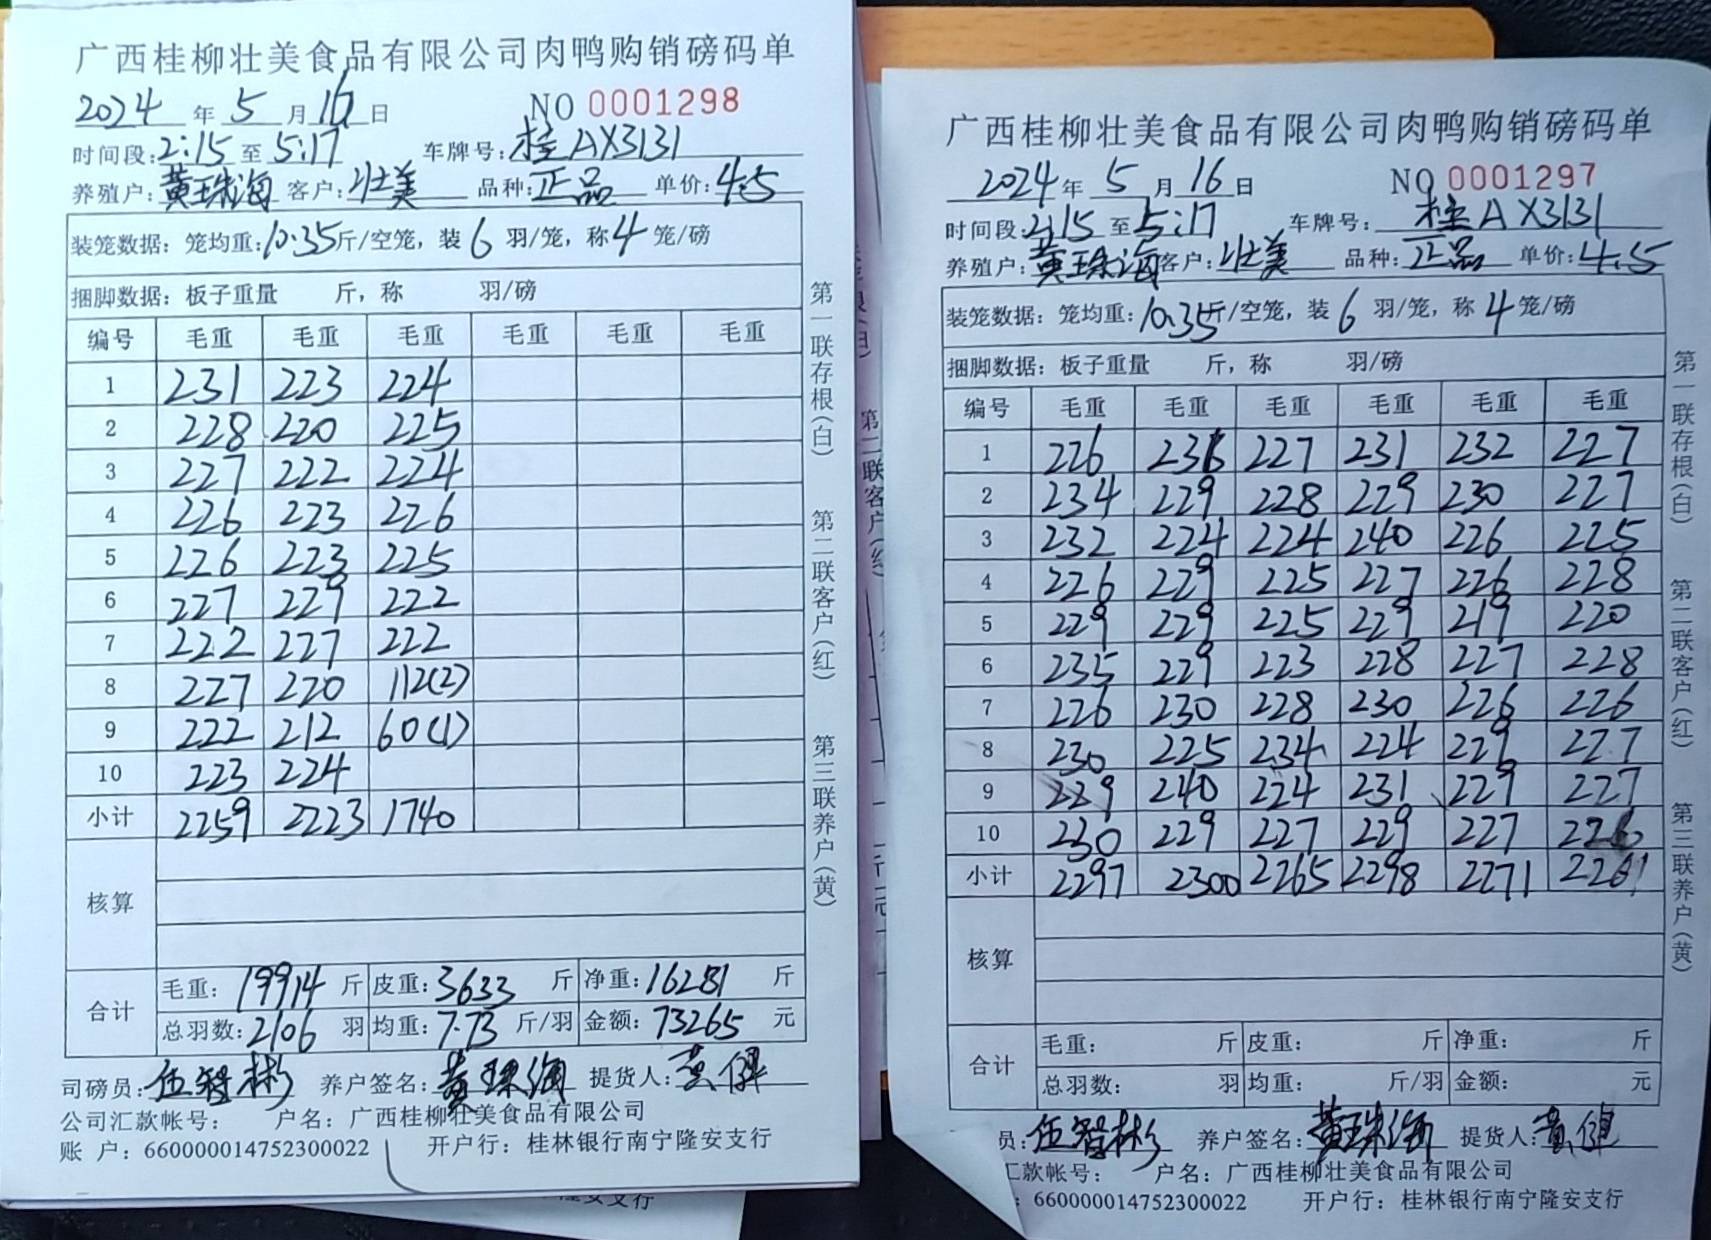 广西桂柳壮美食品有限公司肉鸭购销磅码单
2024 年 5 月 16 日 NO 0001298
时间段:2:15 至 5:17 车牌号:桂AX3131
养殖户:黄珠海 客户:壮美 品种:正品 单价:4.5
装笼数据: 笼均重:10.35斤/空笼, 装 6 羽/笼, 称 4 笼/磅
捆脚数据: 板子重量 斤, 称 羽/磅
编号 毛重 毛重 毛重 毛重 毛重 毛重
1 231 223 224
2 228 220 225
3 227 222 224
4 226 223 226
5 226 223 225
6 227 229 222
7 222 227 222
8 227 220 112(2)
9 222 212 60(1)
10 223 224
小计 2259 2223 1740
核算
合计 毛重: 19914 斤 皮重: 3633 斤 净重: 16281 斤
总羽数: 2106 羽 均重: 7.73 斤/羽 金额: 73265 元
司磅员: 伍智彬 养户签名: 黄珠海 提货人:
公司汇款帐号: 户名: 广西桂柳壮美食品有限公司
账 户: 660000014752300022 开户行: 桂林银行南宁隆安支行
第一联存根(白) 第二联客户(红) 第三联养户(黄)
广西桂柳壮美食品有限公司肉鸭购销磅码单
2024 年 5 月 16 日 NO 0001297
时间段:2:15 至 5:17 车牌号: 桂AX3131
养殖户: 黄珠海 客户: 壮美 品种: 正品 单价: 4.5
装笼数据: 笼均重:10.35斤/空笼, 装 6 羽/笼, 称 4 笼/磅
捆脚数据: 板子重量 斤, 称 羽/磅
编号 毛重 毛重 毛重 毛重 毛重 毛重
1 226 236 227 231 232 227
2 234 229 228 229 230 227
3 232 224 224 240 226 225
4 226 229 225 227 226 228
5 229 229 225 229 219 220
6 235 229 223 228 227 228
7 226 230 228 230 226 226
8 230 225 234 224 229 227
9 229 240 224 231 229 227
10 230 229 227 229 227 226
小计 2297 2300 2265 2298 2271 2261
核算
合计 毛重: 斤 皮重: 斤 净重: 斤
总羽数: 羽 均重: 斤/羽 金额: 元
员: 伍智彬 养户签名: 黄珠海 提货人:
汇款帐号: 户名: 广西桂柳壮美食品有限公司
: 660000014752300022 开户行: 桂林银行南宁隆安支行
第一联存根(白) 第二联客户(红) 第三联养户(黄)
隆安支行